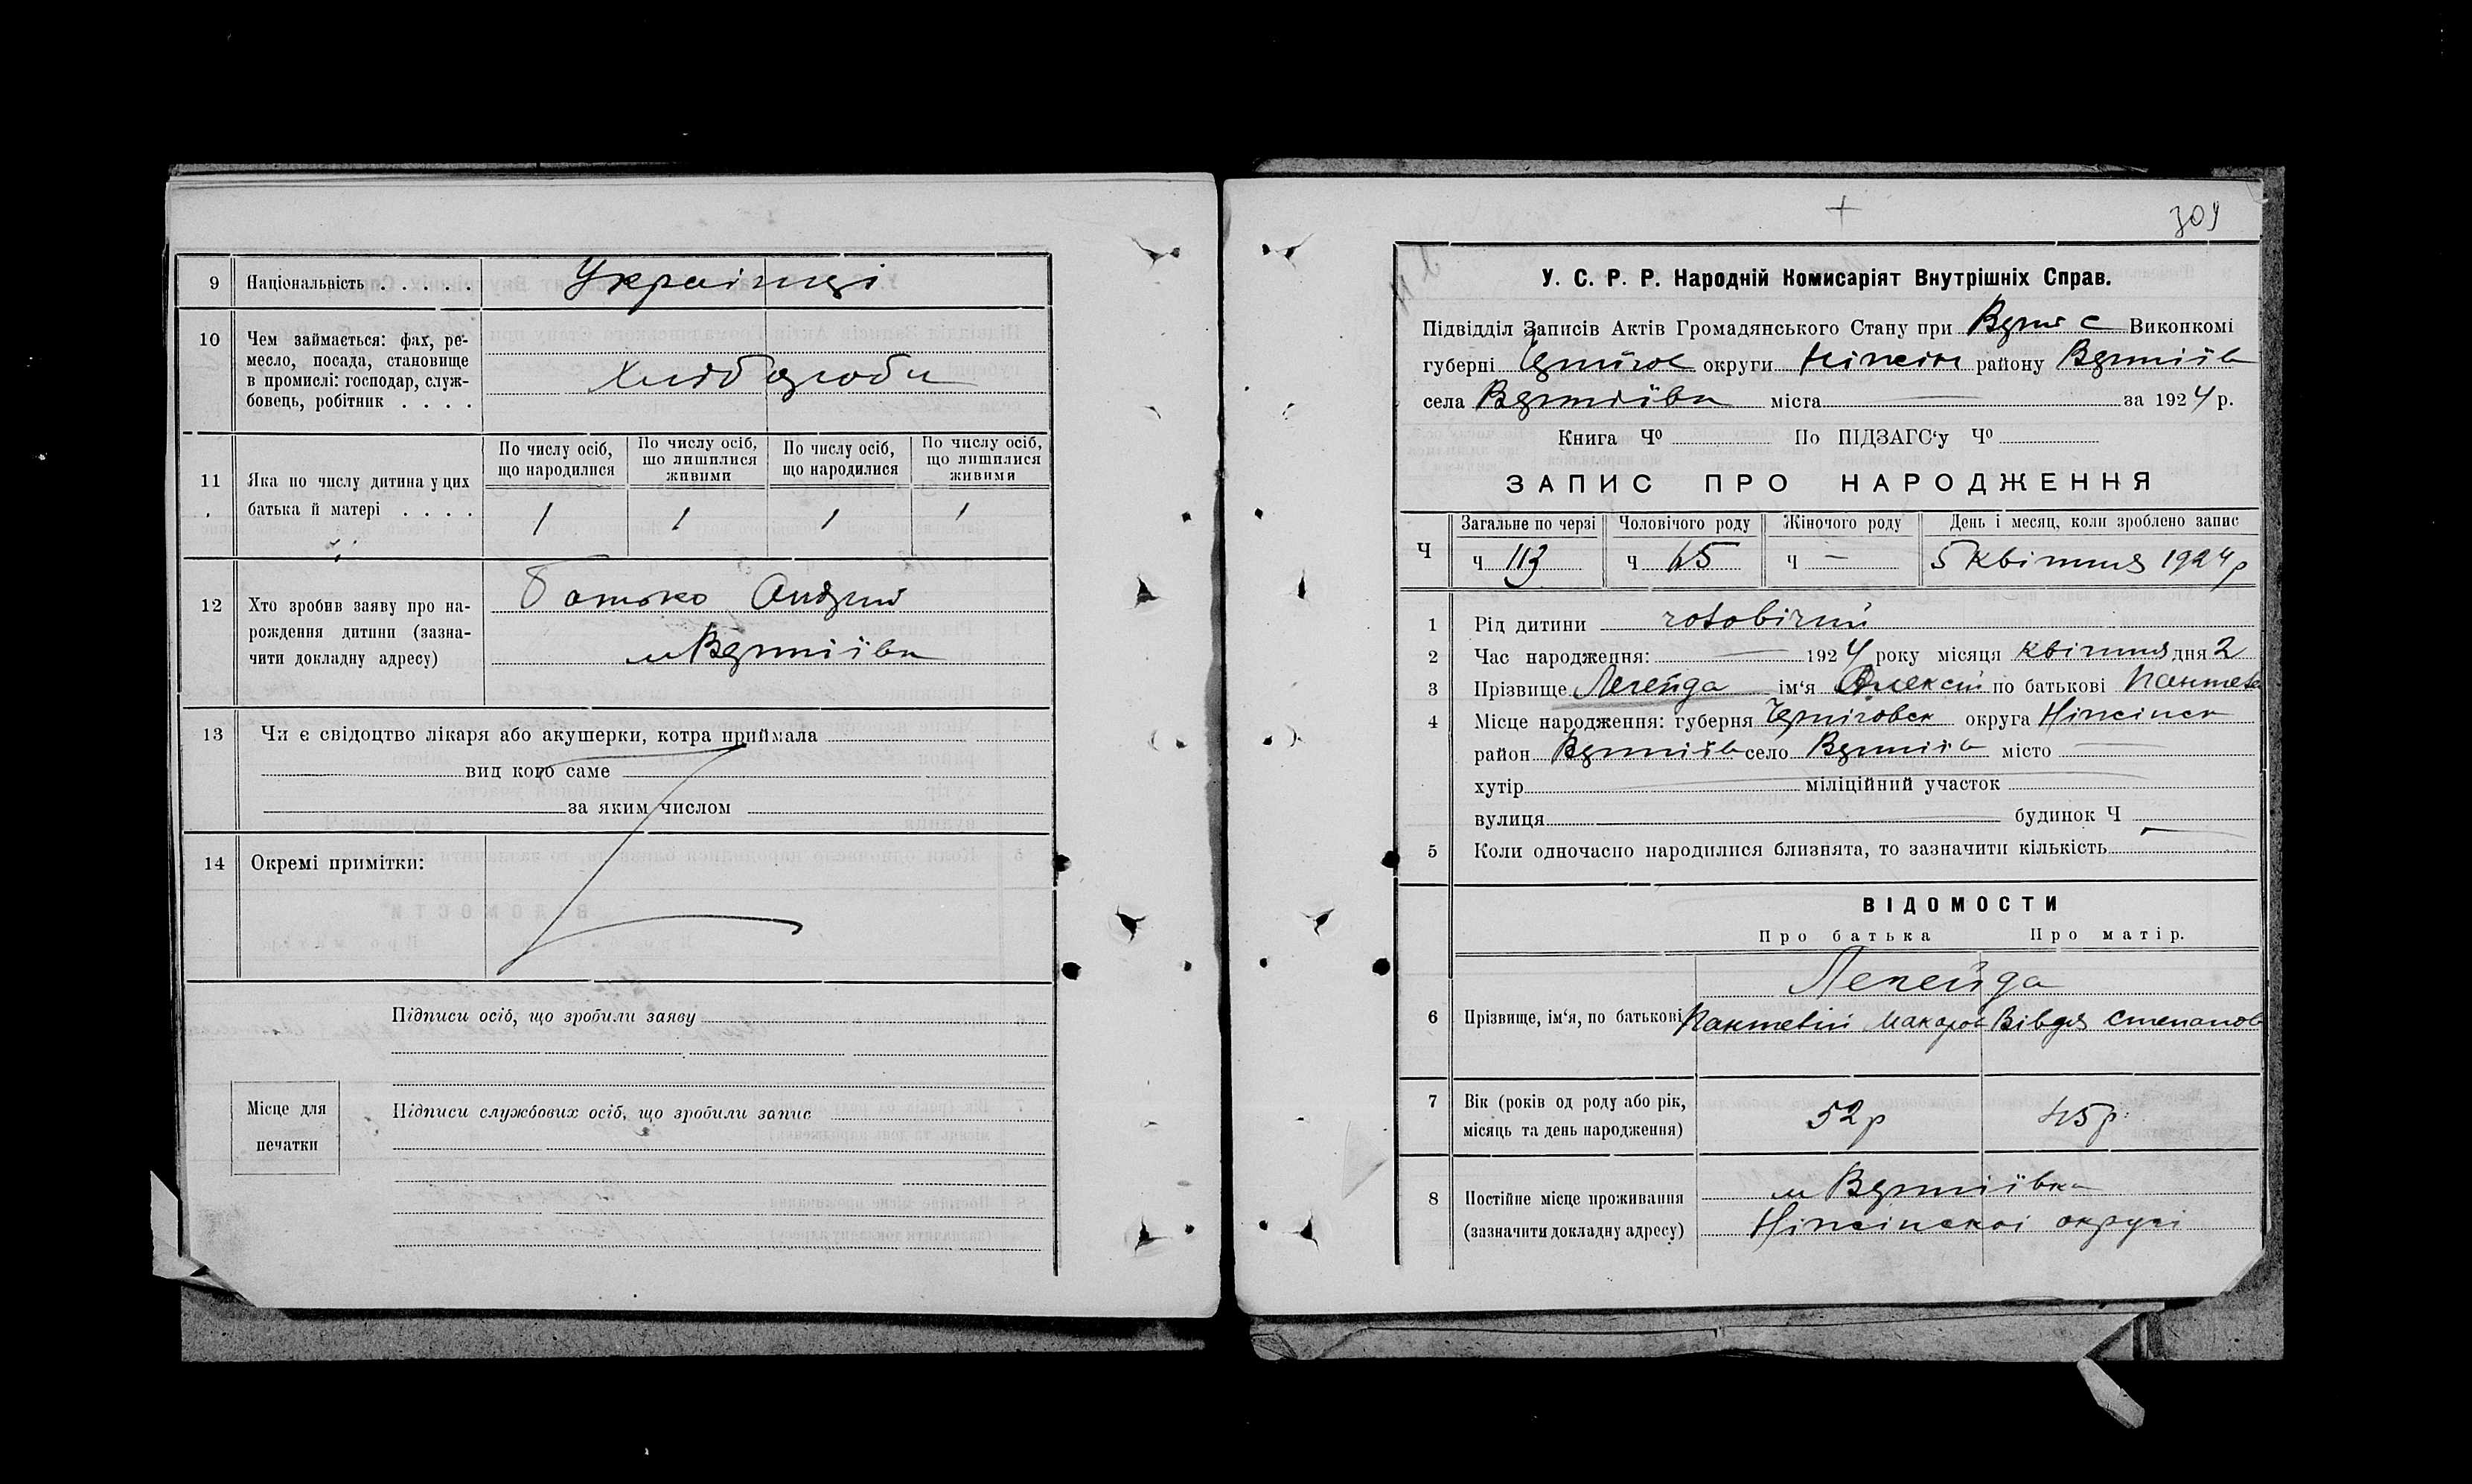 9 Національність . . . . . Українці
10 Чем займається: фах, ре-
месло, посада, становище
в промислі: господар, служ-
бовець, робітник . . . . Хлібороби
11 Яка по числу дитина у цих
батька й матері . . . .
По числу осіб, що народилися 1
По числу осіб, що лишилися живими 1
По числу осіб, що народилися 1
По числу осіб, що лишилися живими 1
12 Хто зробив заяву про на- Батько Андрий
рождення дитини (зазна-
чити докладну адресу) м Вертіївка
13 Чи є свідоцтво лікаря або акушерки, котра приймала
вид кого саме
за яким числом
14 Окремі примітки:
Підписи осіб, що зробили заяву
Місце для
печатки
Підписи службових осіб, що зробили запис
309
У. С. Р. Р. Народній Комисаріят Внутрішніх Справ.
Підвідділ Записів Актів Громадянського Стану при Верт С Викопкомі
губерні Чернігов округи Ніжін району Вертіїв
села Вертіївки міста за 1924 р.
Книга Чº По ПІДЗАГС‘у Чº
ЗАПИС ПРО НАРОДЖЕННЯ
Ч
Загальне по черзі Чоловічого роду Жіночого роду День і месяц, коли зроблено запис
ч 113 ч 65 ч — 5 квітня 1924 р
1 Рід дитини чоловічий
2 Час народження: — 1924 року місяця квітня дня 2
3 Прізвище Легейда ім‘я Олексій по батькові
4 Місце народження: губерня Черніговск округа Ніжінск
район Вертіїв село Вертіїв місто —
хутір міліційний участок
вулиця будинок Ч
5 Коли одночасно народилися близнята, то зазначити кількість
ВІДОМОСТИ
Про батька Про матір.
Легейда
6 Прізвище, ім‘я, по батькові Макаров Вівдя Степанов
7 Вік (років од роду або рік,
місяць та день народження) 52 р 45 р.
8 Постійне місце проживання м Вертіївка
(зазначити докладну адресу) Ніжінскоі округі